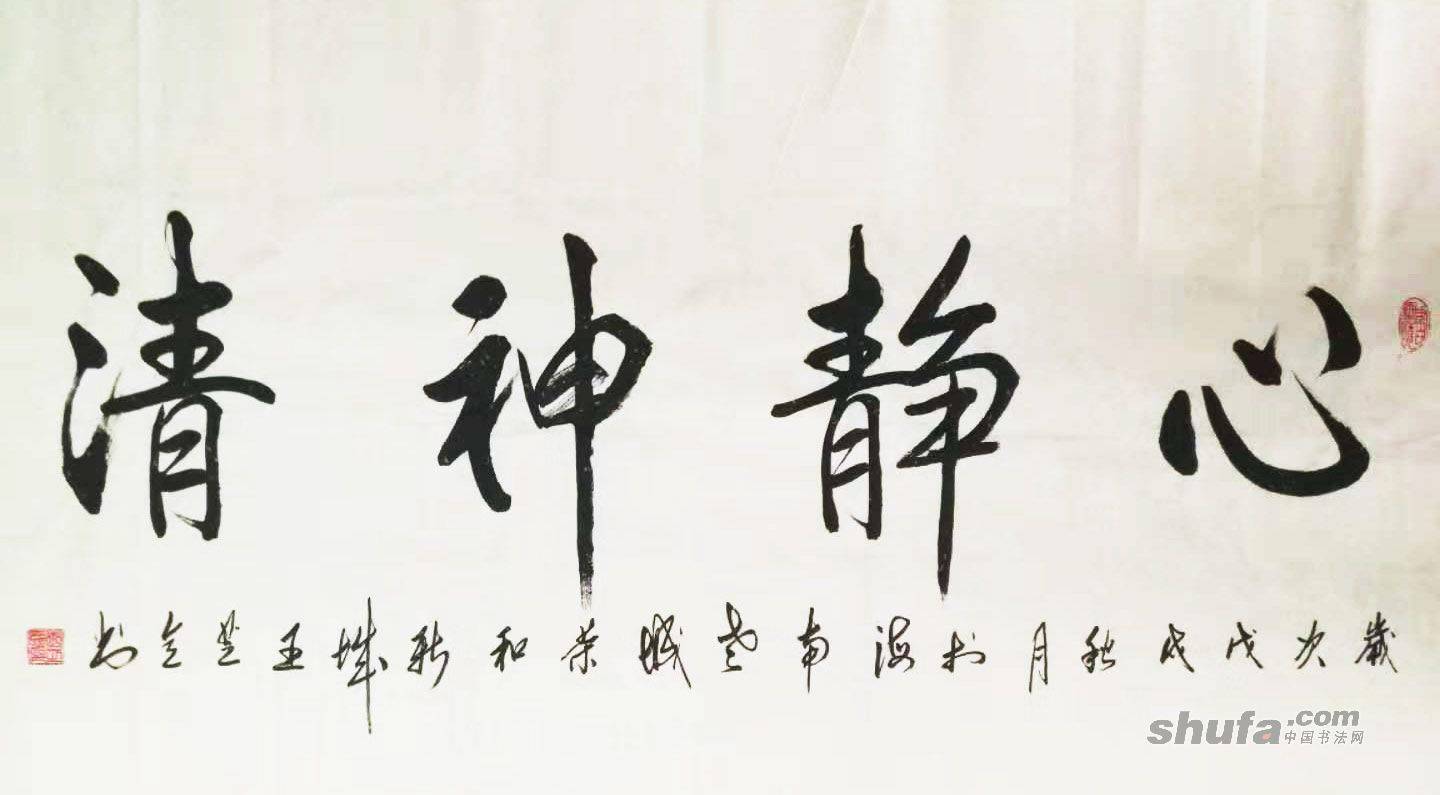 心静神清
岁次戊戌秋月於海南老城荣和新城王芝立书
shufa.com
中国书法网